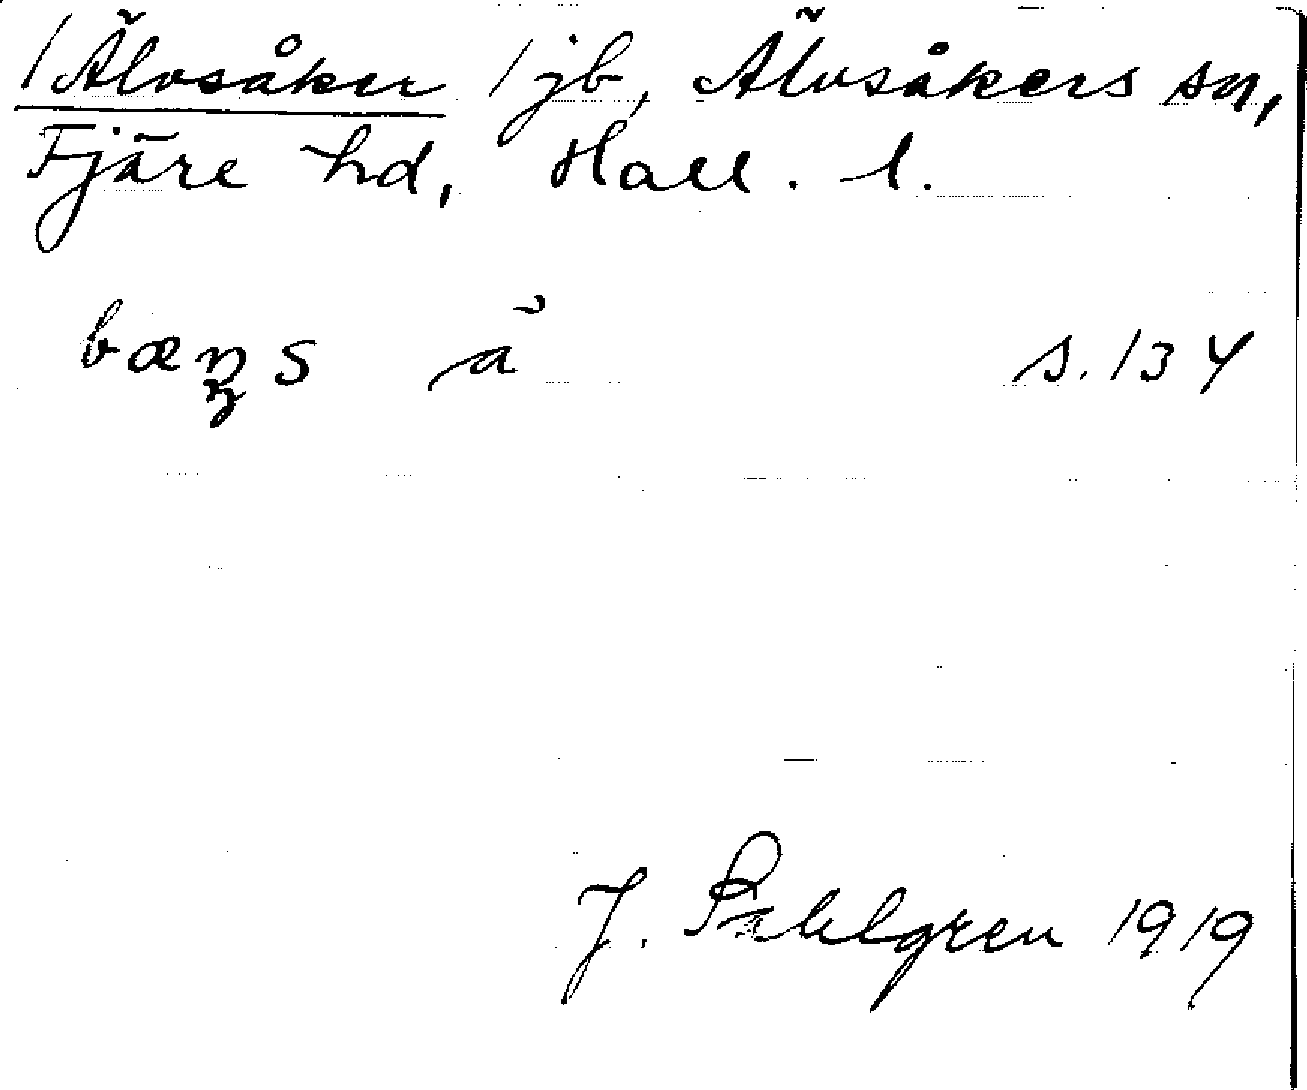 /Älvsåker /jb, Älvsåkers sn,
Fjäre hd, Hall. l.
s. 134
J. Sahlgren 1919